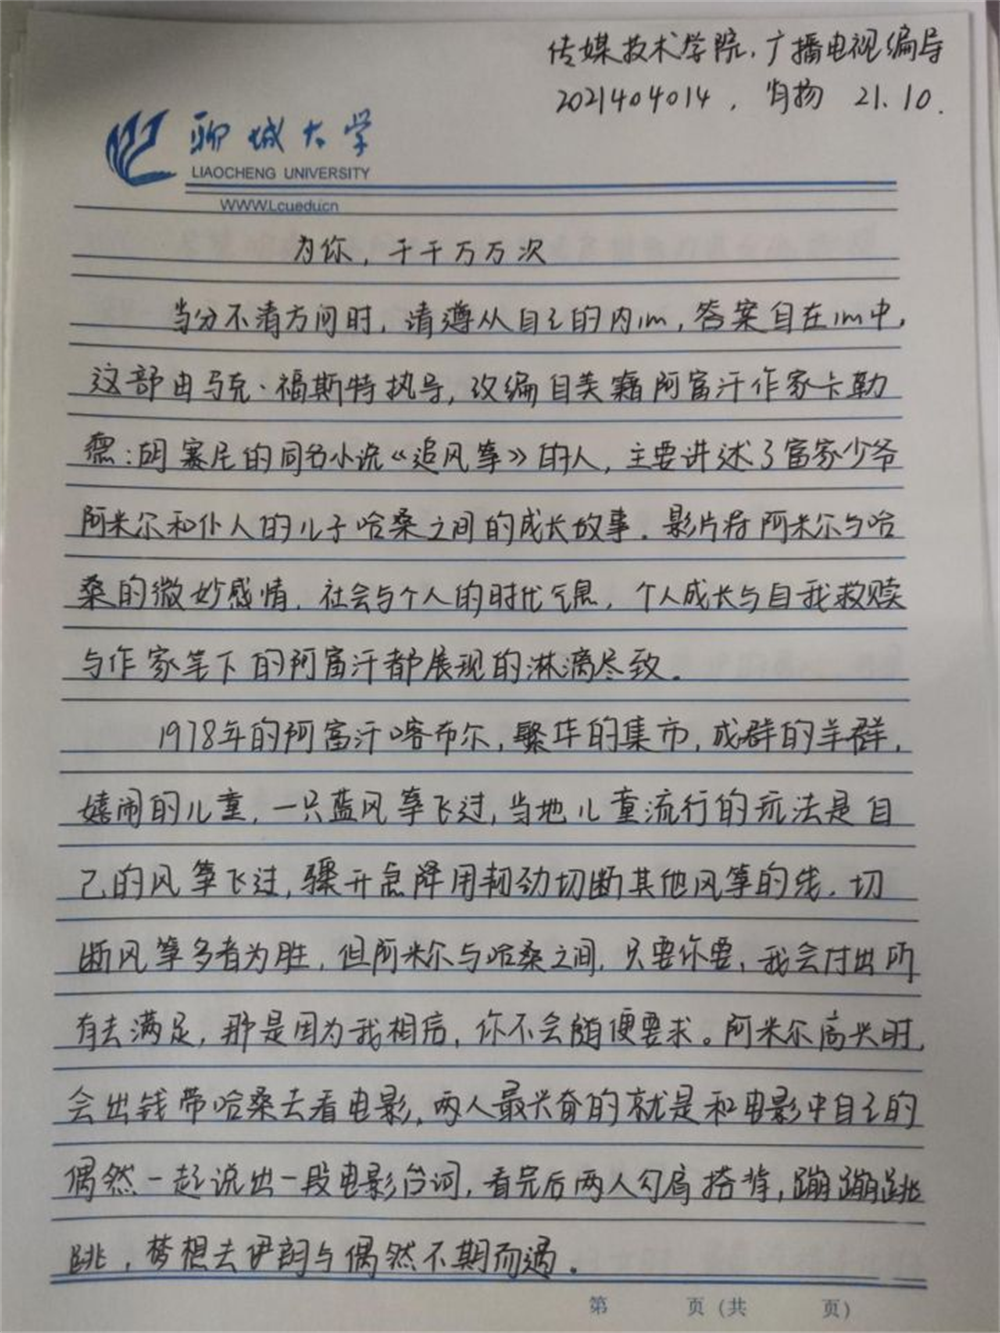 传媒技术学院、广播电视编导
2021404014，肖扬 21.10.
聊城大学
LIAOCHENG UNIVERSITY
WWW.Lcueducn
为你，千千万万次
当分不清方向时，请遵从自己的内心，答案自在心中，
这部由马克·福斯特执导，改编自美籍阿富汗作家卡勒
德：胡塞尼的同名小说《追风筝》的人，主要讲述了富家少爷
阿米尔和仆人的儿子哈桑之间的成长故事．影片将阿米尔与哈
桑的微妙感情，社会与个人的时代气息，个人成长与自我救赎
与作家笔下的阿富汗都展现的淋漓尽致．
1978年的阿富汗喀布尔，繁华的集市，成群的羊群，
嬉闹的儿童，一只蓝风筝飞过，当地儿童流行的玩法是自
己的风筝飞过，骤升急降用韧劲切断其他风筝的线，切
断风筝多者为胜，但阿米尔与哈桑之间，只要你要，我会付出所
有去满足，那是因为我相信，你不会随便要求。阿米尔高兴时，
会出钱带哈桑去看电影，两人最兴奋的就是和电影中自己的
偶然一起说出一段电影台词，看完后两人勾肩搭背，蹦蹦跳
跳，梦想去伊朗与偶然不期而遇．
第 页（共 页）